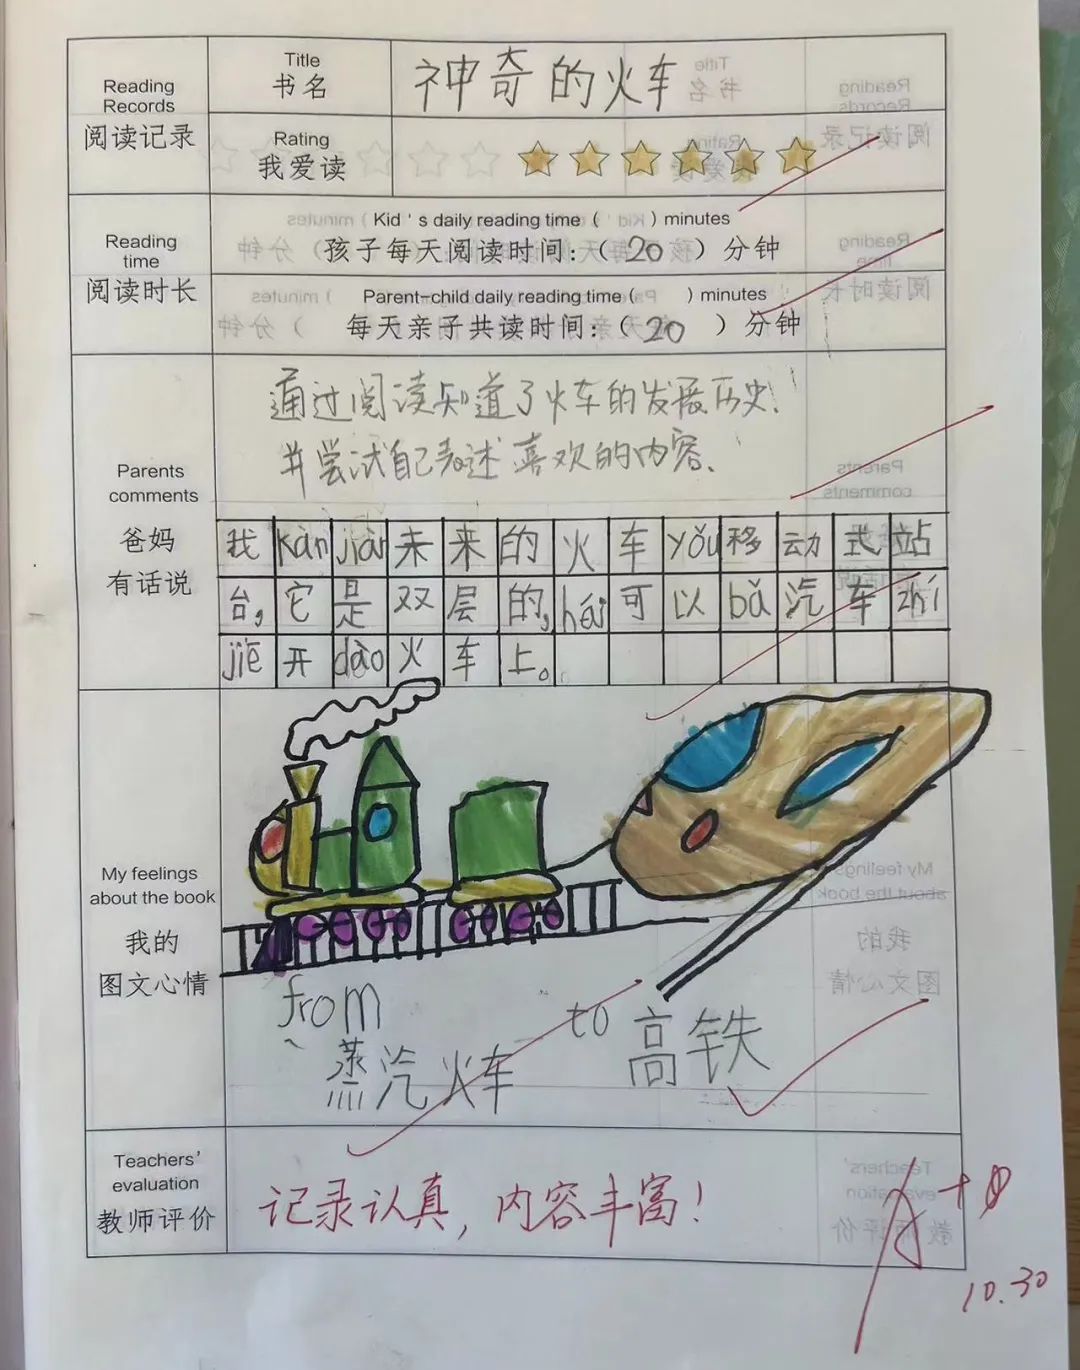 Reading Records
阅读记录
Title
书名
神奇的火车
Rating
我爱读
Reading time
阅读时长
Kid's daily reading time ( ) minutes
孩子每天阅读时间:(20)分钟
Parent-child daily reading time ( ) minutes
每天亲子共读时间:(20)分钟
Parents comments
爸妈
有话说
通过阅读知道了火车的发展历史.
并尝试自己表述喜欢的内容.
我kàn jiàn未来的火车yǒu移动式站
台,它是双层的,hái可以bǎ汽车zhí
jiē开dào火车上。
My feelings about the book
我的
图文心情
from
蒸汽火车
to 高铁
Teachers' evaluation
教师评价
记录认真,内容丰富!
10.30